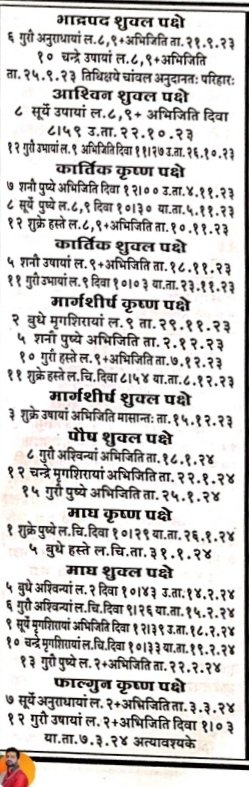 भाद्रपद शुक्ल पक्षे
६ गुरौ अनुराधायां ल.८,९+अभिजिति ता.२१.९.२३
१० चन्द्रे उषायां ल.८,९+अभिजिति
ता.२५.९.२३ तिथिक्षये चांवल अनुदानतः परिहारः
आश्विन शुक्ल पक्षे
८ सूर्ये उषायां ल.८,९+ अभिजिति दिवा
८।५९ उ.ता.२२.१०.२३
१२ गुरौ उभायां ल.९ अभिजिति दिवा ११।२७ उ.ता.२६.१०.२३
कार्तिक कृष्ण पक्षे
७ शनौ पुष्ये अभिजिति दिवा १२।०० उ.ता.४.११.२३
८ सूर्ये पुष्ये ल.८,९ दिवा १०।३० या.ता.५.११.२३
१२ शुक्रे हस्ते ल.८,९+अभिजिति ता.१०.११.२३
कार्तिक शुक्ल पक्षे
५ शनौ उषायां ल.९+अभिजिति ता.१८.११.२३
११ गुरौ उभायां ल.९ दिवा १०।०३ या.ता.२३.११.२३
मार्गशीर्ष कृष्ण पक्षे
२ बुधे मृगशिरायां ल.९ ता.२९.११.२३
५ शनौ पुष्ये अभिजिति ता.२.१२.२३
१० गुरौ हस्ते ल.९+अभिजिति ता.७.१२.२३
११ शुक्रे हस्ते ल.चि.दिवा ८।५४ या.ता.८.१२.२३
मार्गशीर्ष शुक्ल पक्षे
३ शुक्रे उषायां अभिजिति मासान्तः ता.१५.१२.२३
पौष शुक्ल पक्षे
८ गुरौ अश्विन्यां अभिजिति ता.१८.१.२४
१२ चन्द्रे मृगशिरायां अभिजिति ता.२२.१.२४
१५ गुरौ पुष्ये अभिजिति ता.२५.१.२४
माघ कृष्ण पक्षे
१ शुक्रे पुष्ये ल.चि.दिवा १०।२९ या.ता.२६.१.२४
५ बुधे हस्ते ल.चि.ता.३१.१.२४
माघ शुक्ल पक्षे
५ बुधे अश्विन्यां ल.२ दिवा १०।४३ उ.ता.१४.२.२४
६ गुरौ अश्विन्यां ल.चि.दिवा ९।२६ या.ता.१५.२.२४
९ सूर्ये मृगशिरायां अभिजिति दिवा १२।३९ उ.ता.१८.२.२४
१० चन्द्रे मृगशिरायां ल.चि.दिवा १०।३३ या.ता.१९.२.२४
१३ गुरौ पुष्ये ल.२+अभिजिति ता.२२.२.२४
फाल्गुन कृष्ण पक्षे
७ सूर्ये अनुराधायां ल.२+अभिजिति ता.३.३.२४
१२ गुरौ उषायां ल.२+अभिजिति दिवा १।०३
या.ता.७.३.२४ अत्यावश्यके